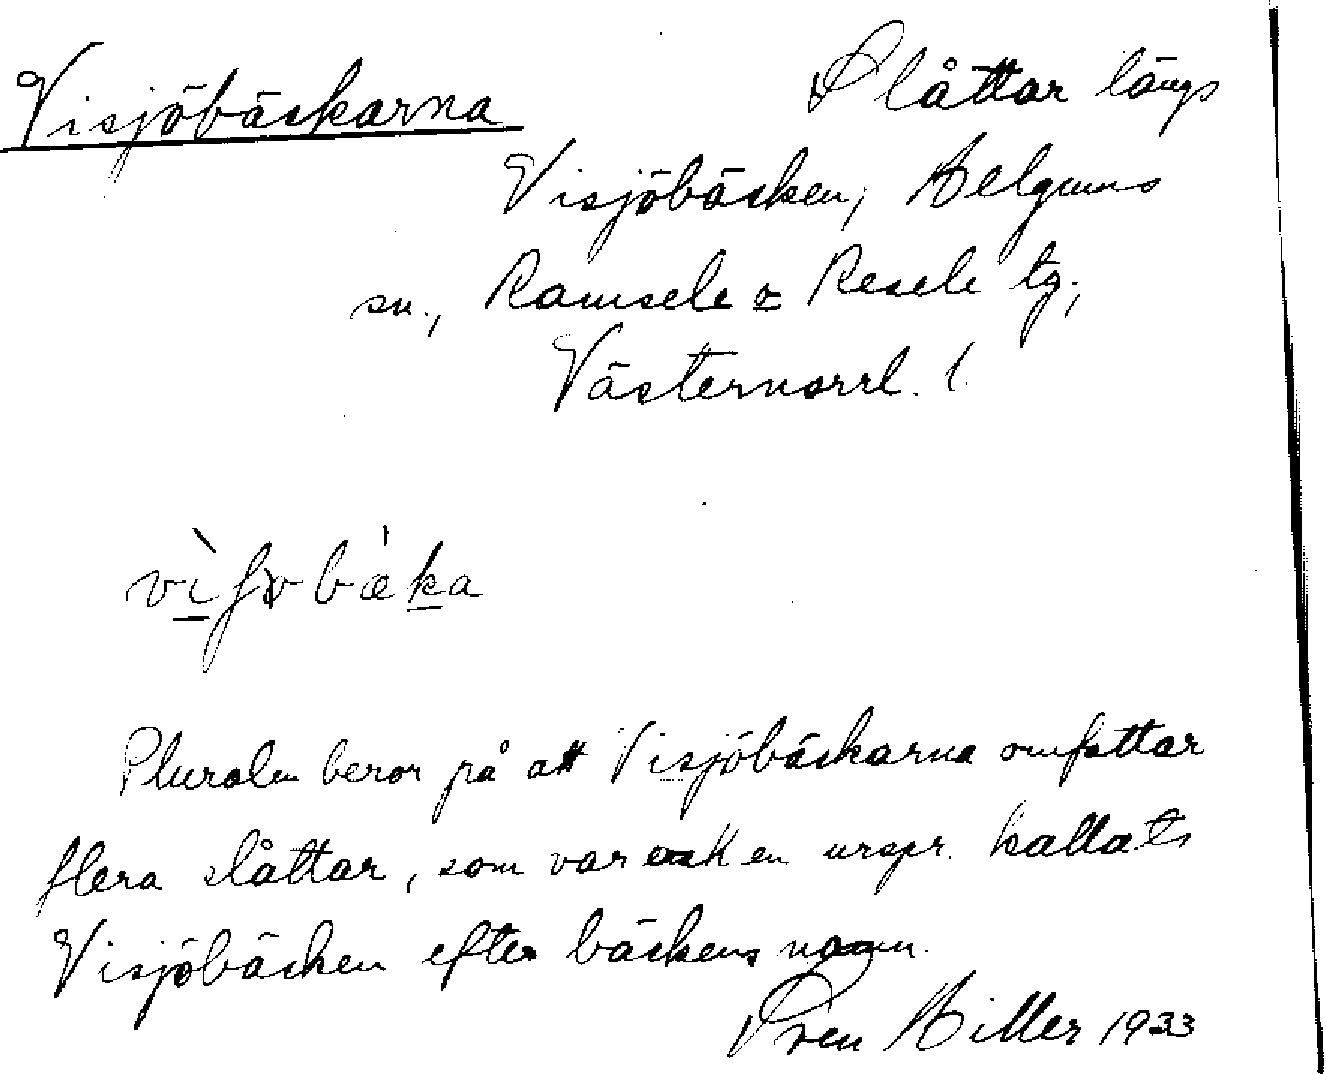 Visjöbäckarna
Slåttar längs
Visjöbäcken, Helgums
sn., Ramsele o Resele tg,
Västernorrl. l.
Pluralen beror på att Visjöbäckarna omfattar
flera slåttar, som var och en urspr. kallats
Visjöbäcken efter bäckens namn.
Sven Hiller 1933